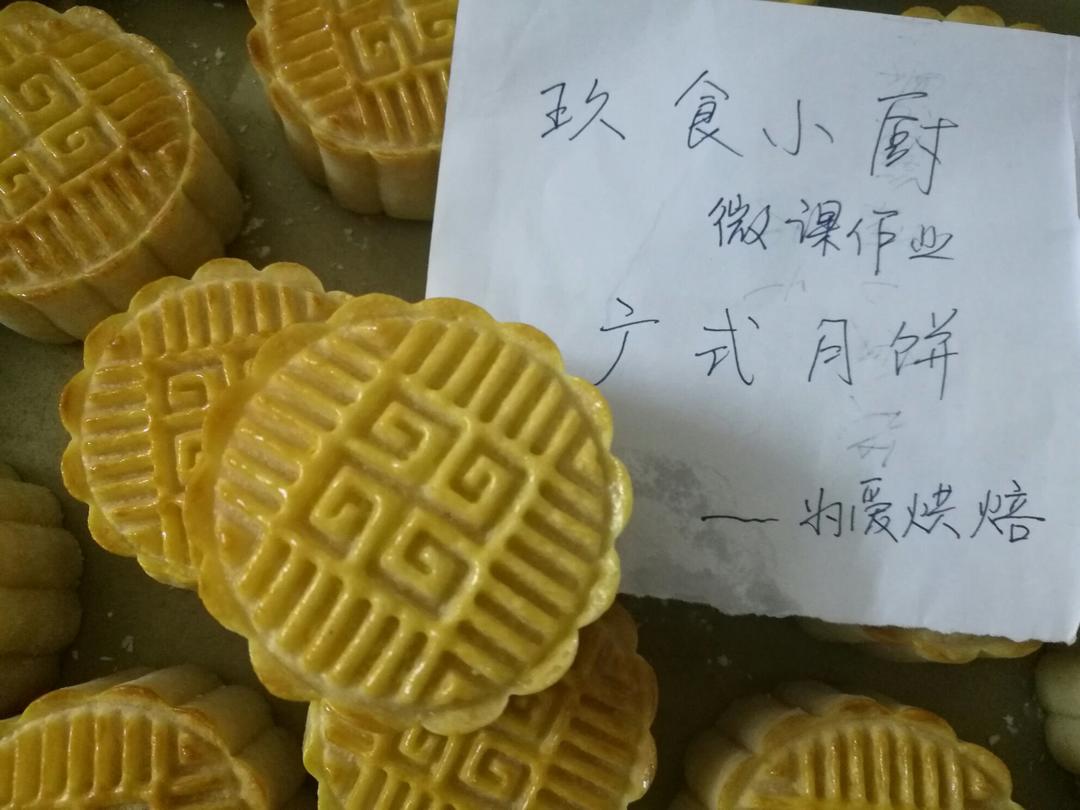 玖食小厨
微课作业
广式月饼
—为爱烘焙